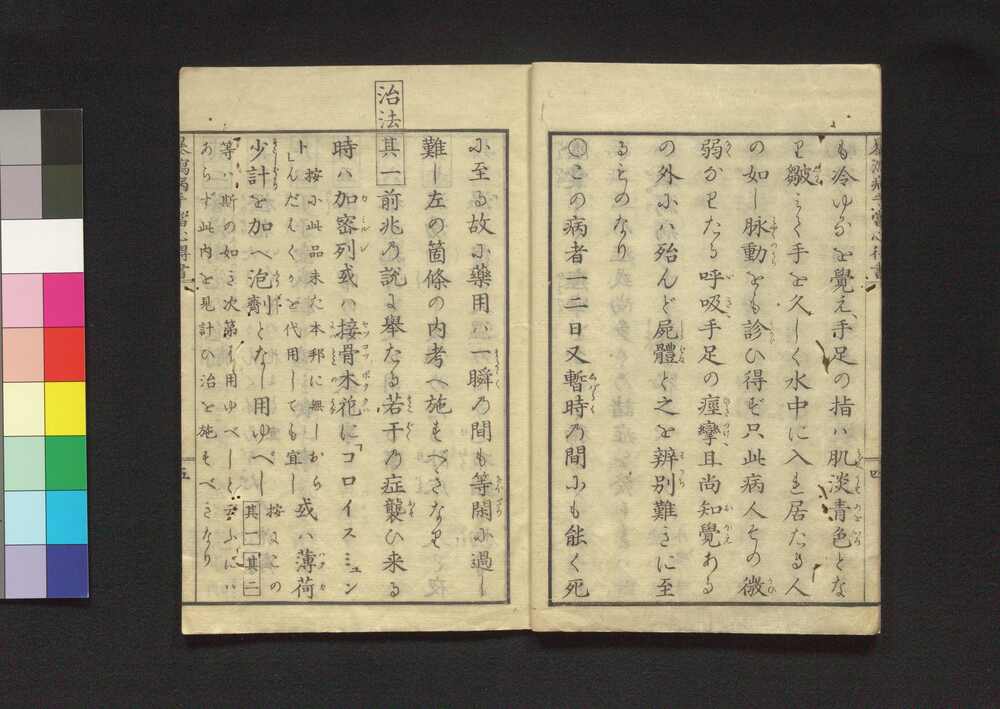 も冷ゆるを覺え、手足の指ハ肌淡青色とな
り皺みて手を久しく水中に入れ居たる人
の如し脉動をも診ひ得ず只此病人その微
弱かりたる呼吸手足の痙攣且尚知覺ある
の外ハ殆んど屍體と之を辨別難きに至
るものなり
この病者一二日又暫時の間にも能く死
に至る故に藥用ハ一瞬の間も等閑に過し
難し左の箇條の内考へ施すべきなり
治法其一 前兆の説に擧たる若干の症襲ひ来る
時ハ加密列或ハ接骨木花に「コロイスミュン
ト 按に此品未た本邦に無しおらんだはくかを代用しても宜し 或ハ薄荷
少計を加へ泡劑となし用ゆべし 按にこの其一其二
等ハ斯の如き次第に用ゆべしと云ふにハ
あらず此内を見計ひ治を施すべきなり
四
五